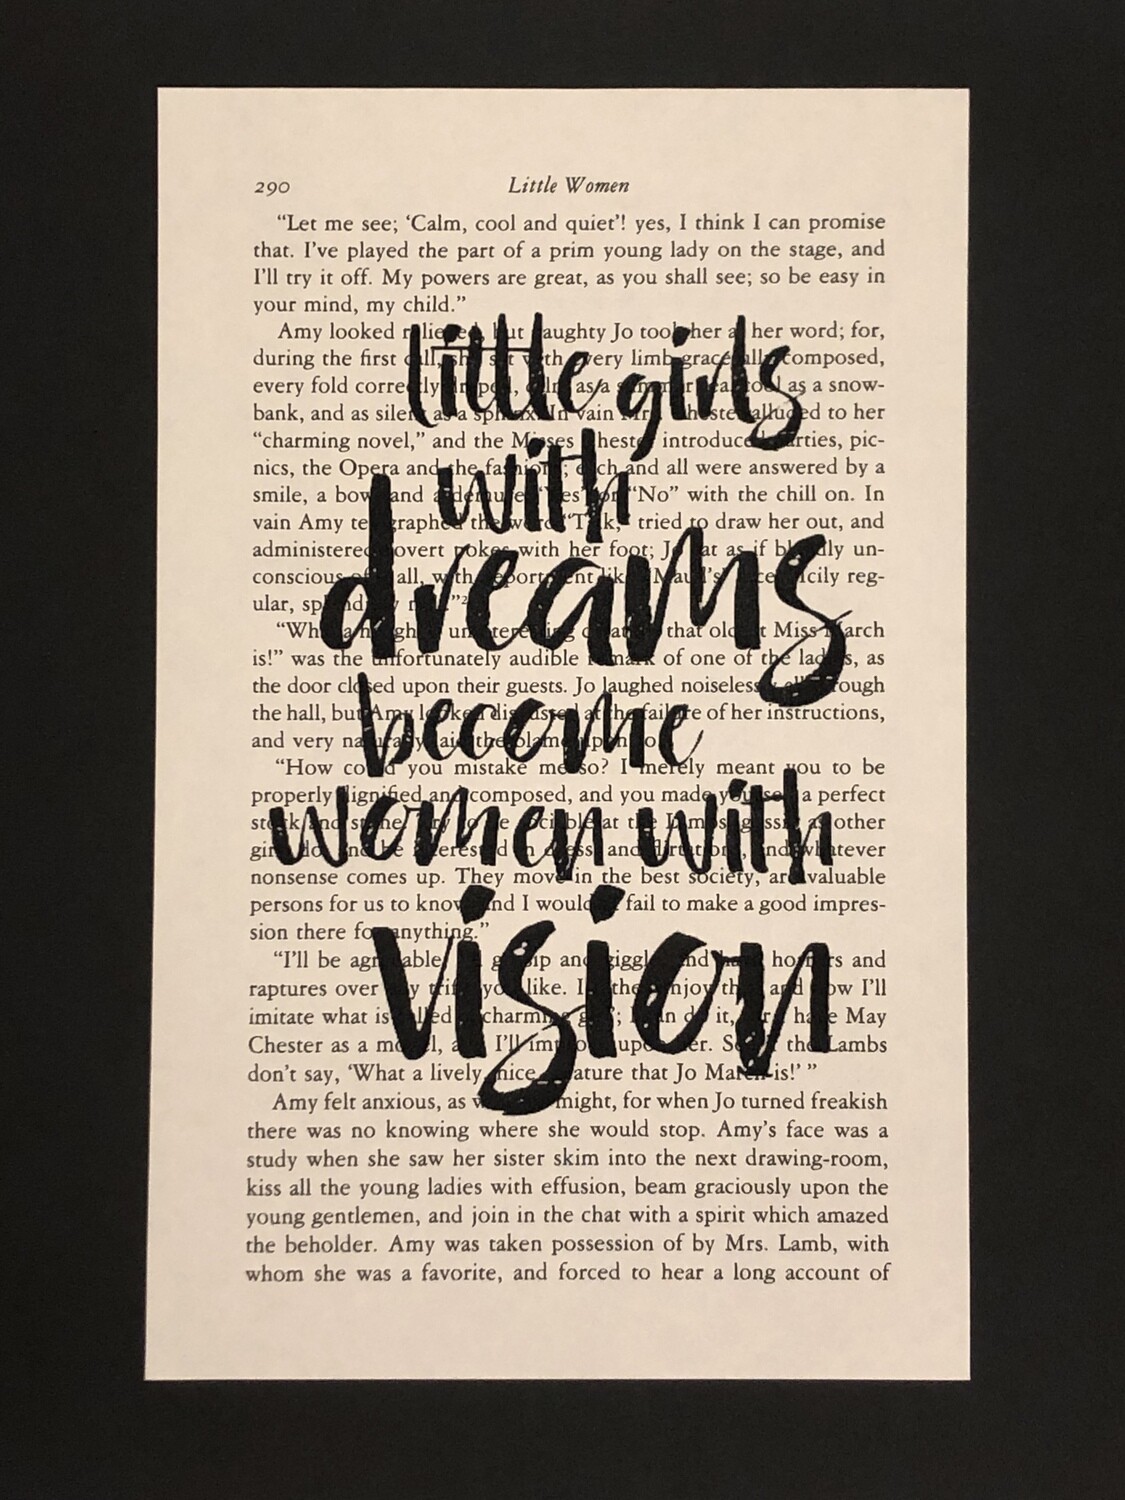 290 Little Women
“Let me see; ‘Calm, cool and quiet’! yes, I think I can promise
that. I’ve played the part of a prim young lady on the stage, and
I’ll try it off. My powers are great, as you shall see; so be easy in
your mind, my child.”
Amy looked relieved, but naughty Jo took her at her word; for,
during the first call, she sat with every limb gracefully composed,
every fold correctly draped, calm as a summer sea, cool as a snow-
bank, and as silent as a sphinx. In vain Mrs. Chester alluded to her
“charming novel,” and the Misses Chester introduced parties, pic-
nics, the Opera and the fashions; each and all were answered by a
smile, a bow, and a demure “Yes” or “No” with the chill on. In
vain Amy telegraphed the word “Talk,” tried to draw her out, and
administered covert pokes with her foot; Jo sat as if blandly un-
conscious of it all, with deportment like “Maud’s” face, “icily reg-
ular, splendidly null.”²
“What a haughty, uninteresting creature that oldest Miss March
is!” was the unfortunately audible remark of one of the ladies, as
the door closed upon their guests. Jo laughed noiselessly all through
the hall, but Amy looked disgusted at the failure of her instructions,
and very naturally laid the blame upon Jo.
“How could you mistake me so? I merely meant you to be
properly dignified and composed, and you made yourself a perfect
stock and stone. Try to be sociable at the Lambs’, gossip as other
girls do, and be interested in dress, and flirtations, and whatever
nonsense comes up. They move in the best society, are valuable
persons for us to know, and I wouldn’t fail to make a good impres-
sion there for anything.”
“I’ll be agreeable; I’ll gossip and giggle, and have horrors and
raptures over any trifle you like. I rather enjoy this, and now I’ll
imitate what is called ‘a charming girl’; I can do it, for I have May
Chester as a model, and I’ll improve upon her. See if the Lambs
don’t say, ‘What a lively, nice creature that Jo March is!’ ”
Amy felt anxious, as well she might, for when Jo turned freakish
there was no knowing where she would stop. Amy’s face was a
study when she saw her sister skim into the next drawing-room,
kiss all the young ladies with effusion, beam graciously upon the
young gentlemen, and join in the chat with a spirit which amazed
the beholder. Amy was taken possession of by Mrs. Lamb, with
whom she was a favorite, and forced to hear a long account of
little girls
with
dreams
become
women with
vision